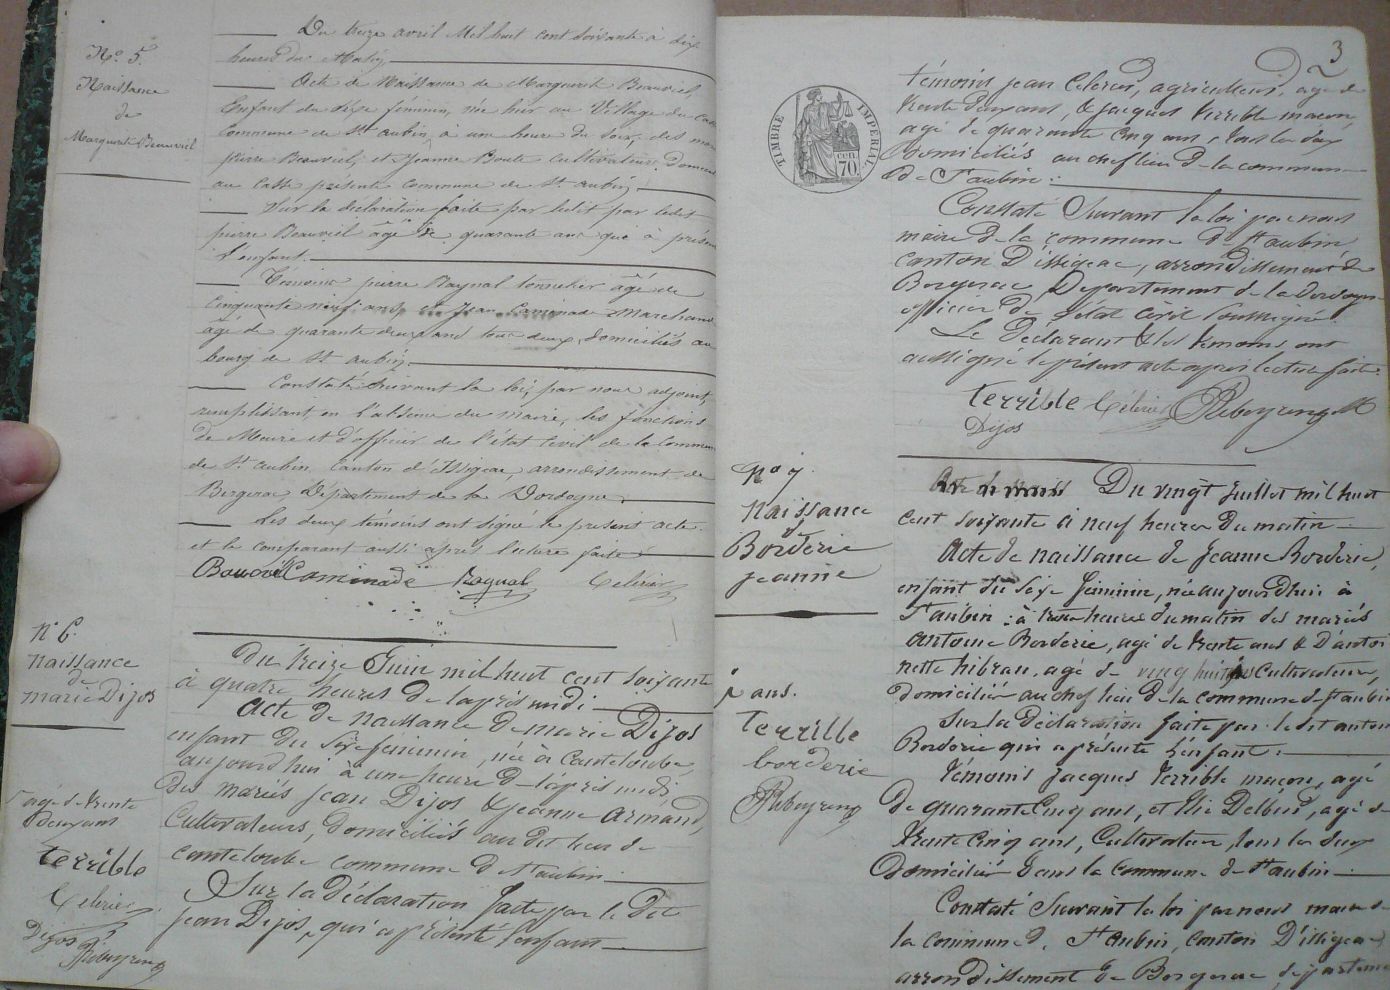 N° 5.
Naissance
de
Marguerite Beauviel
Du treize avril Mil huit cent soixante à dix
heures du Matin
Acte de Naissance de Marguerite Beauviel
Enfant du sexe féminin, née hier au Village du Casse
Commune de St aubin, à une heure du soir, des mariés
pierre Beauviel, et Jeanne Boute Cultivateurs Domiciliés
au Casse présente Commune de St aubin
Sur la déclaration faite par ledit par ledit
pierre Beauviel âgé de quarante ans qui à présenté
l'enfant.
Témoins pierre Raynal tonnelier âgé de
Cinquante neuf ans, et Jean Caminade Marchand
âgé de quarante deux ans tous deux domiciliés au
bourg de St aubin
Constaté suivant la loi, par nous adjoint,
remplissant en l'absence du maire, les fonctions
de Maire et d'officier de l'état Civil de la Commune
de St aubin Canton d'Issigeac, arrondissement de
Bergerac Département de la Dordogne
Les deux témoins ont signé le présent acte
et le comparant aussi après lecture faite
Bauviel Caminade Raynal Célérier
N° 6.
Naissance
de
marie Dijos
du treize Juin mil huit cent soixante
à quatre heures de l'après midi
Acte de naissance de marie Dijos
enfant du sexe féminin, née à Canteloube,
aujourdhui à une heure de l'après midi
des mariés jean Dijos & jeanne Armand,
Cultivateurs, Domiciliés au dit lieu de
canteloube commune de St aubin
Sur la Déclaration faite par le dit
jean Dijos, qui a présenté l'enfant
agé de trente
deux ans
terrible
Celerier
Dijos
Reboyreng
3
TIMBRE IMPERIAL
CEN.
70.
témoins jean Celerier, agriculteur, agé de
trente deux ans, & jacques terrible macon,
agé de quarante cinq ans, tous les deux
Domiciliés au chef lieu de la commune
de St aubin.
Constaté Suivant la loi par nous
maire de la commune de St aubin
canton D'issigeac, arrondissement de
Bergerac Département de la Dordogne
officier de l'état civil soussigné.
Le Déclarant & les temoins ont
aussi signé le présent acte apres lecture faite.
Terrible Célérier Reboyreng
Dijos
N° 7.
naissance
de
Borderie
jeanne
Du vingt juillet mil huit
cent soixante à neuf heures du matin
Acte de naissance de jeanne Borderie,
enfant du sexe féminin, née aujourdhui à
St aubin, à trois heures du matin des mariés
antoine Borderie, agé de trente ans & D'antoi
nette hibran, agé de vingt huit ans Cultivateurs,
domiciliés au chef lieu de la commune de St aubin
Sur la déclaration faite par le dit antoine
Borderie qui a présenté l'enfant
témoins jacques terrible macon, agé
de quarante Cinq ans, et Elie Delbeis, agé de
trente cinq ans, Cultivateur, tous les deux
Domiciliés dans la commune de St aubin
Constaté Suivant la loi par nous maire de
la commune de St Aubin, canton D'issigeac
arrondissement de Bergerac, departement
ans.
terrible
borderie
Reboyreng